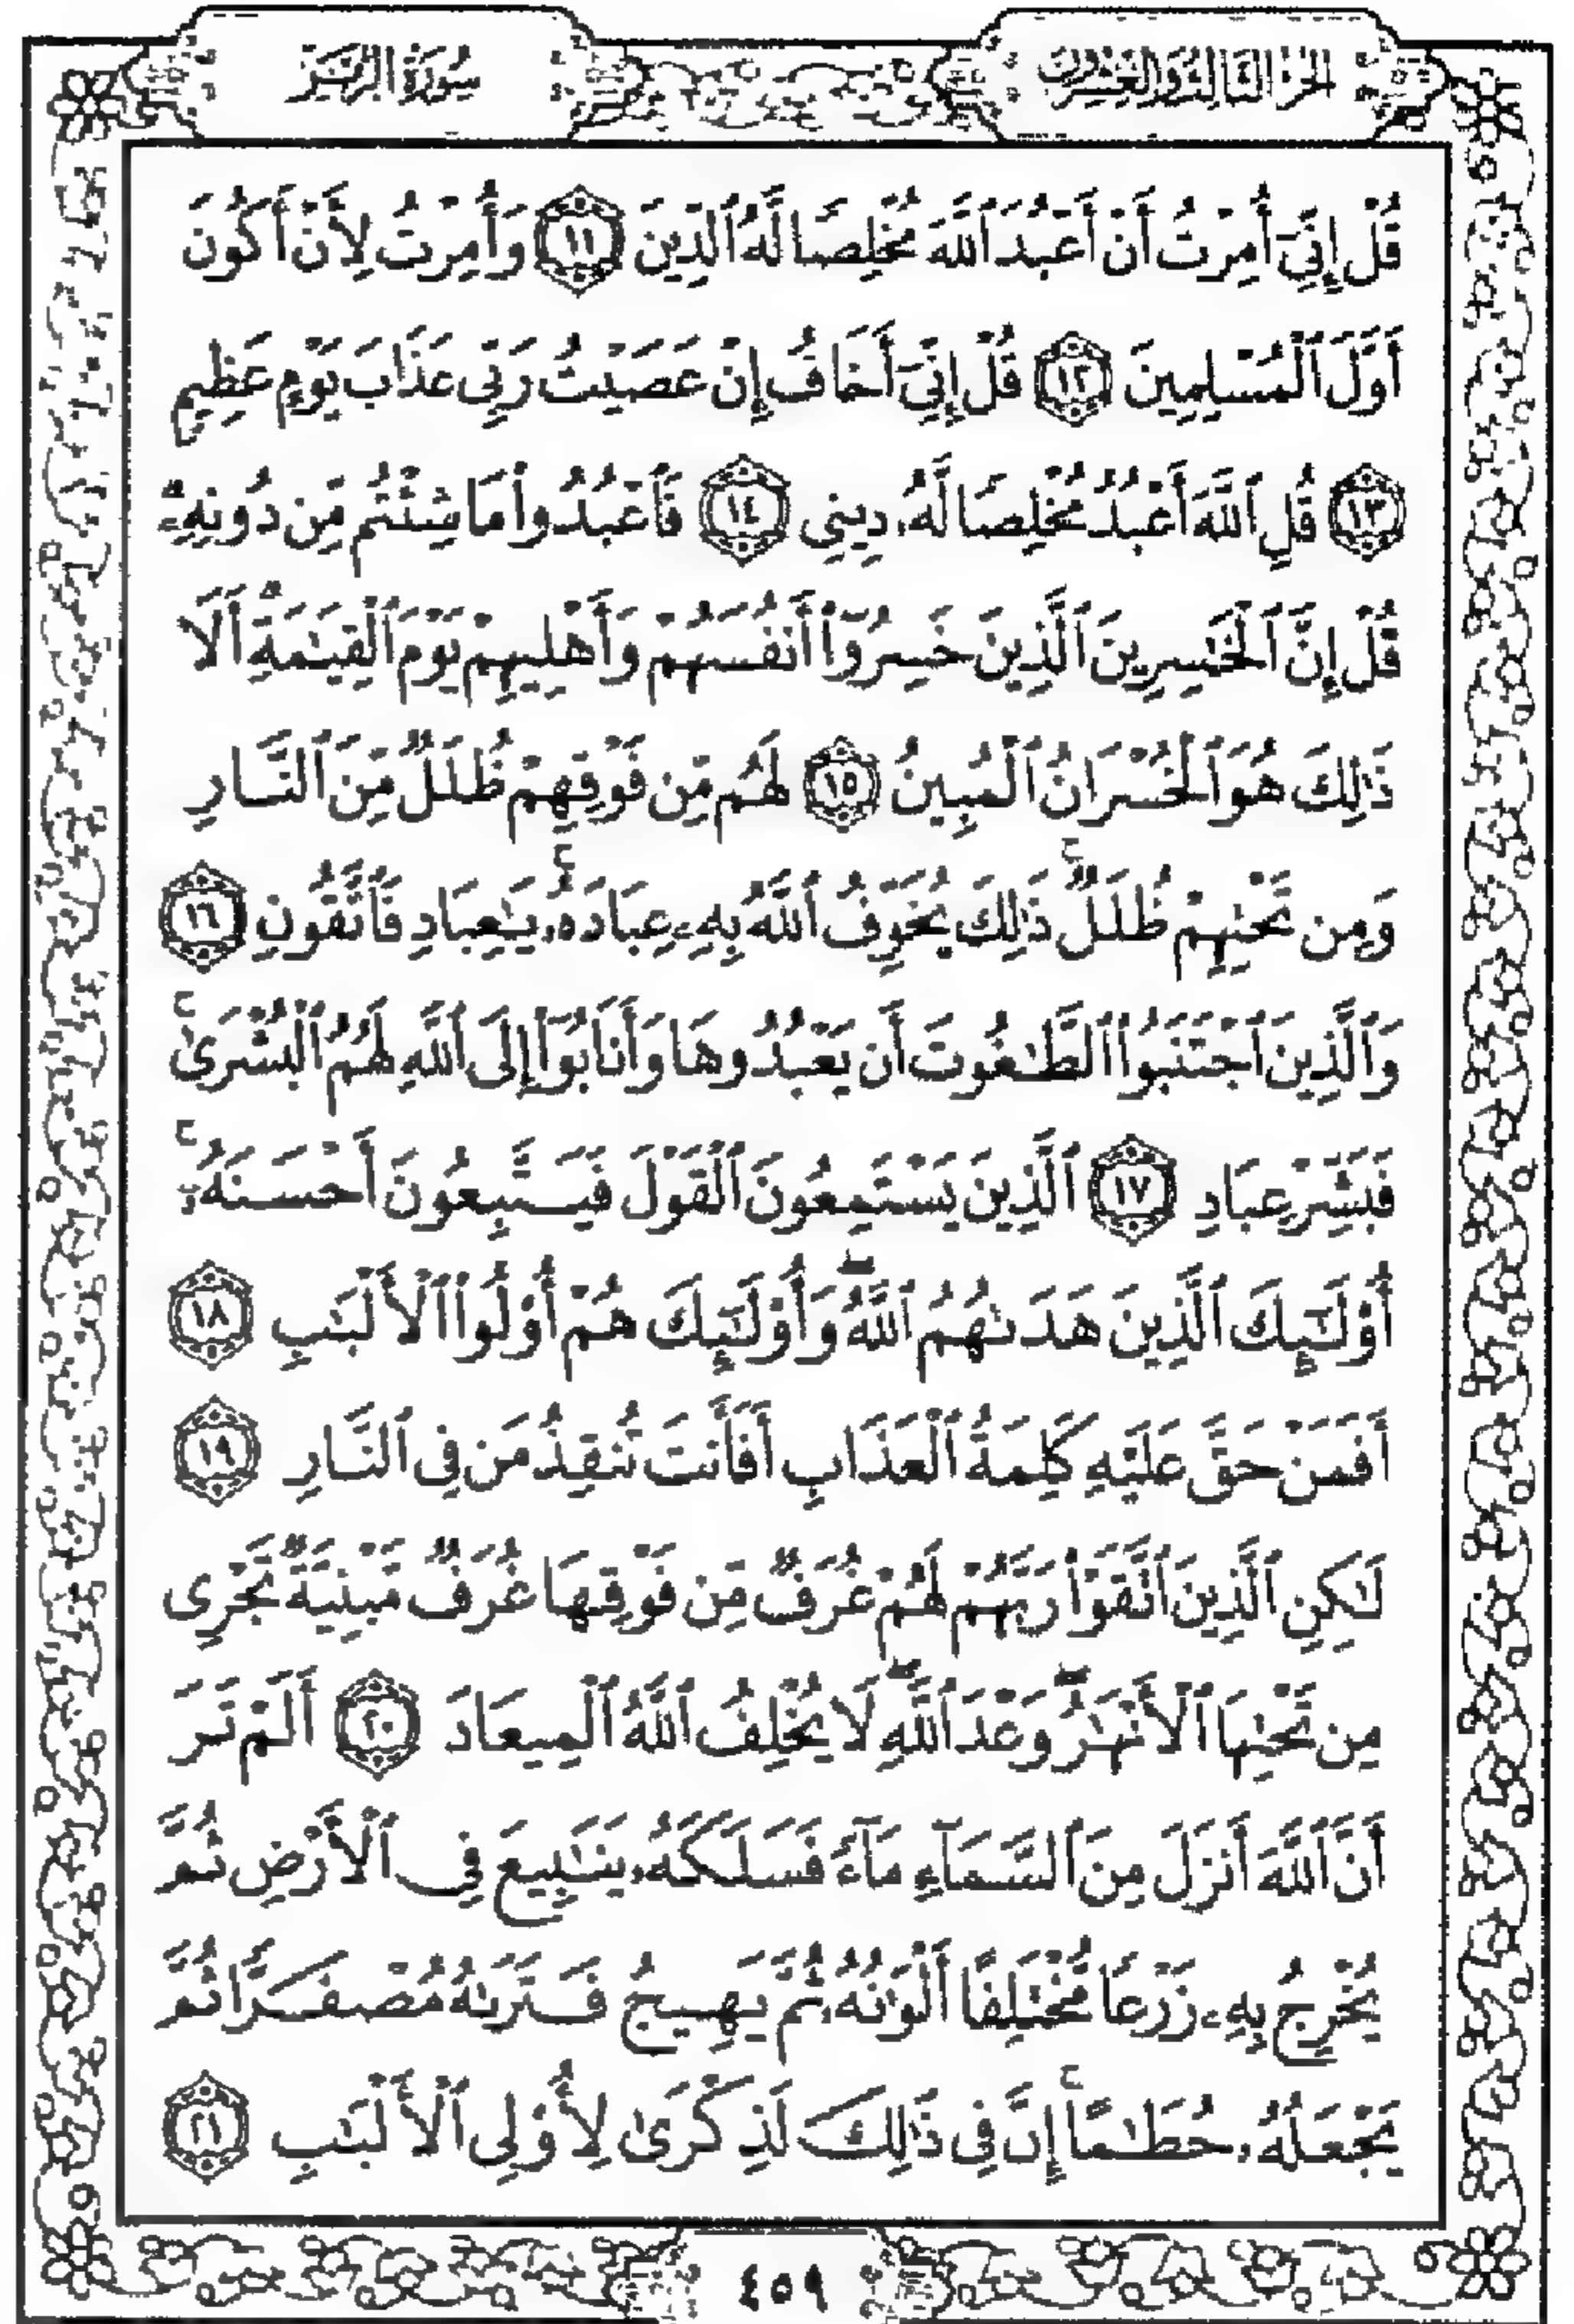 الجزء الثالث والعشرون
سورة الزمر
قُلْ إِنِّىٓ أُمِرْتُ أَنْ أَعْبُدَ ٱللَّهَ مُخْلِصًا لَّهُ ٱلدِّينَ ١١ وَأُمِرْتُ لِأَنْ أَكُونَ
أَوَّلَ ٱلْمُسْلِمِينَ ١٢ قُلْ إِنِّىٓ أَخَافُ إِنْ عَصَيْتُ رَبِّى عَذَابَ يَوْمٍ عَظِيمٍ
١٣ قُلِ ٱللَّهَ أَعْبُدُ مُخْلِصًا لَّهُۥ دِينِى ١٤ فَٱعْبُدُوا۟ مَا شِئْتُم مِّن دُونِهِۦ ۗ
قُلْ إِنَّ ٱلْخَـٰسِرِينَ ٱلَّذِينَ خَسِرُوٓا۟ أَنفُسَهُمْ وَأَهْلِيهِمْ يَوْمَ ٱلْقِيَـٰمَةِ ۗ أَلَا
ذَٰلِكَ هُوَ ٱلْخُسْرَانُ ٱلْمُبِينُ ١٥ لَهُم مِّن فَوْقِهِمْ ظُلَلٌ مِّنَ ٱلنَّارِ
وَمِن تَحْتِهِمْ ظُلَلٌ ۚ ذَٰلِكَ يُخَوِّفُ ٱللَّهُ بِهِۦ عِبَادَهُۥ ۚ يَـٰعِبَادِ فَٱتَّقُونِ ١٦
وَٱلَّذِينَ ٱجْتَنَبُوا۟ ٱلطَّـٰغُوتَ أَن يَعْبُدُوهَا وَأَنَابُوٓا۟ إِلَى ٱللَّهِ لَهُمُ ٱلْبُشْرَىٰ ۚ
فَبَشِّرْ عِبَادِ ١٧ ٱلَّذِينَ يَسْتَمِعُونَ ٱلْقَوْلَ فَيَتَّبِعُونَ أَحْسَنَهُۥٓ ۚ
أُو۟لَـٰٓئِكَ ٱلَّذِينَ هَدَىٰهُمُ ٱللَّهُ ۖ وَأُو۟لَـٰٓئِكَ هُمْ أُو۟لُوا۟ ٱلْأَلْبَـٰبِ ١٨
أَفَمَنْ حَقَّ عَلَيْهِ كَلِمَةُ ٱلْعَذَابِ أَفَأَنتَ تُنقِذُ مَن فِى ٱلنَّارِ ١٩
لَـٰكِنِ ٱلَّذِينَ ٱتَّقَوْا۟ رَبَّهُمْ لَهُمْ غُرَفٌ مِّن فَوْقِهَا غُرَفٌ مَّبْنِيَّةٌ تَجْرِى
مِن تَحْتِهَا ٱلْأَنْهَـٰرُ ۖ وَعْدَ ٱللَّهِ ۖ لَا يُخْلِفُ ٱللَّهُ ٱلْمِيعَادَ ٢٠ أَلَمْ تَرَ
أَنَّ ٱللَّهَ أَنزَلَ مِنَ ٱلسَّمَآءِ مَآءً فَسَلَكَهُۥ يَنَـٰبِيعَ فِى ٱلْأَرْضِ ثُمَّ
يُخْرِجُ بِهِۦ زَرْعًا مُّخْتَلِفًا أَلْوَٰنُهُۥ ثُمَّ يَهِيجُ فَتَرَىٰهُ مُصْفَرًّا ثُمَّ
يَجْعَلُهُۥ حُطَـٰمًا ۚ إِنَّ فِى ذَٰلِكَ لَذِكْرَىٰ لِأُو۟لِى ٱلْأَلْبَـٰبِ ٢١
٤٥٩